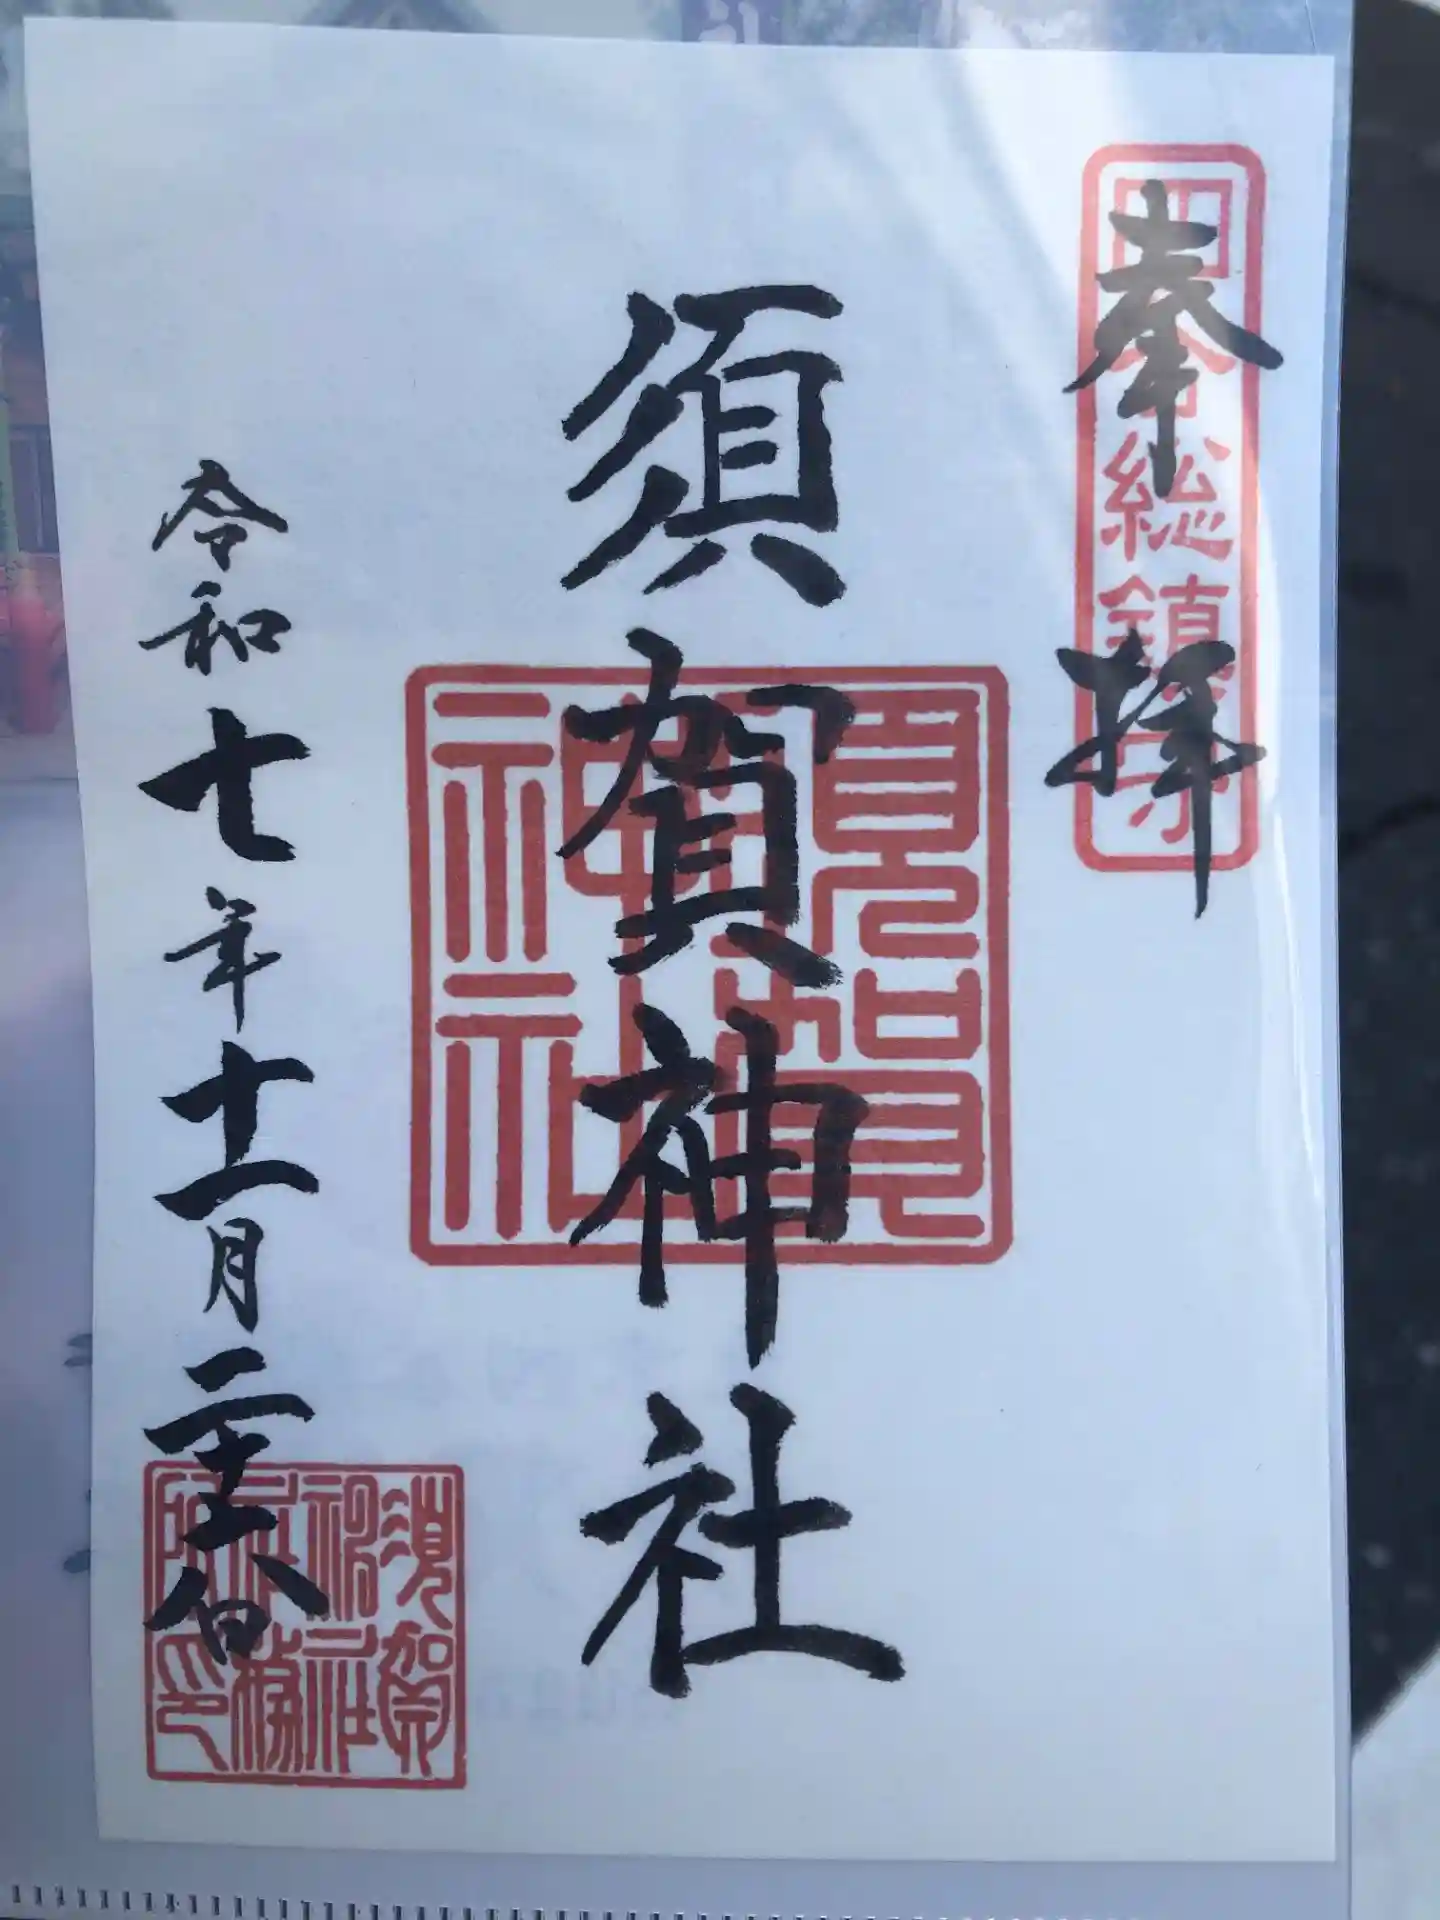 四谷総鎮守
奉拝
須賀神社
須賀
神社
令和七年十一月二十六日
須賀
神社
社務
所印